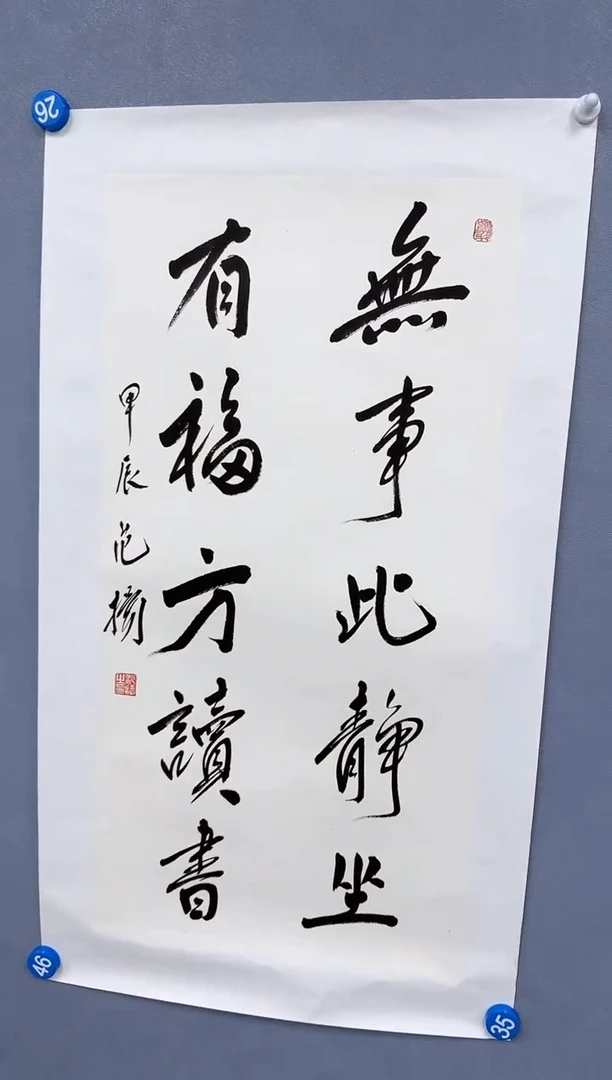 無事此靜坐
有福方讀書
甲辰范
26
46
35